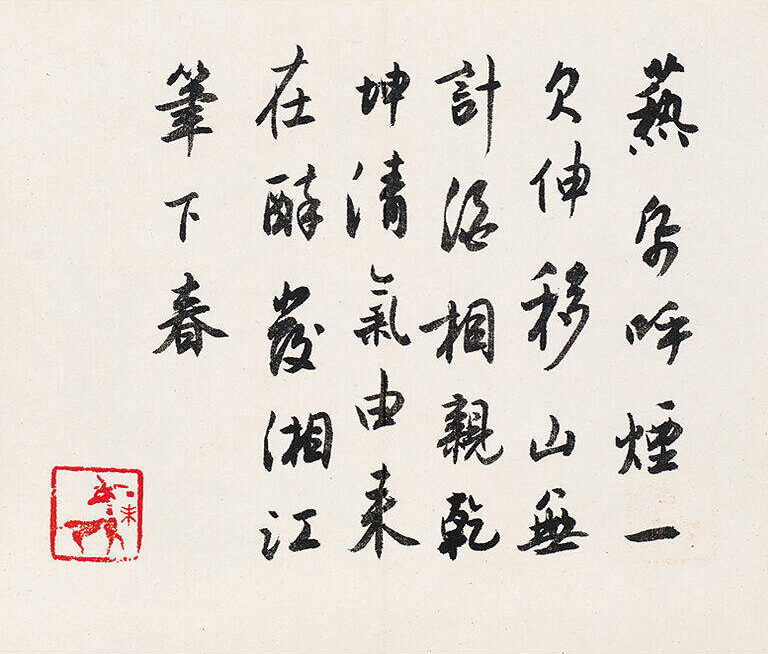 爇帋呼煙一
欠伸移山無
計相親乾
坤清氣由来
在醉發湘江
筆下春